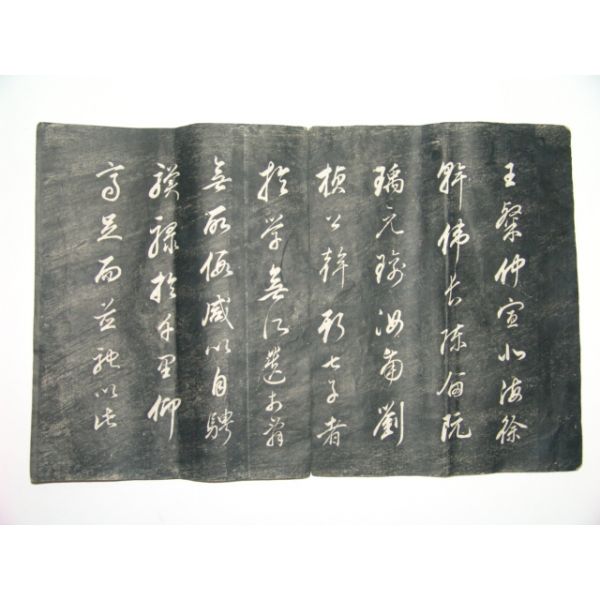 王粲仲宣北海徐
幹偉長陳留阮
瑀元瑜汝南劉
楨公幹斯七子者
於學無所遺於辭
無所假咸以自騁
驥騄於千里仰
齊足而並馳以此